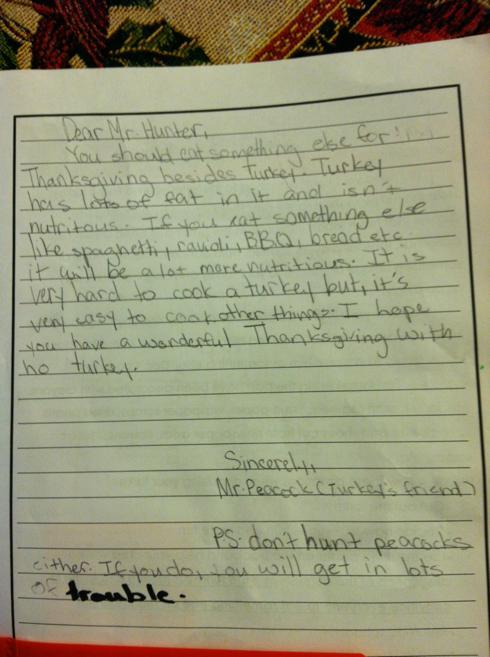 Dear Mr. Hunter,
You should eat something else for
Thanksgiving besides Turkey. Turkey
has lots of fat in it and isn't
nutritous. If you eat something else
like spaghetti, ravioli, BBQ, bread etc.
it will be a lot more nutritious. It is
very hard to cook a turkey but, it's
very easy to cook other things. I hope
you have a wonderful Thanksgiving with
no turkey.
Sincerely,
Mr. Peacock (Turkey's friend)
PS: don't hunt peacocks
either. If you do, you will get in lots
of trouble.